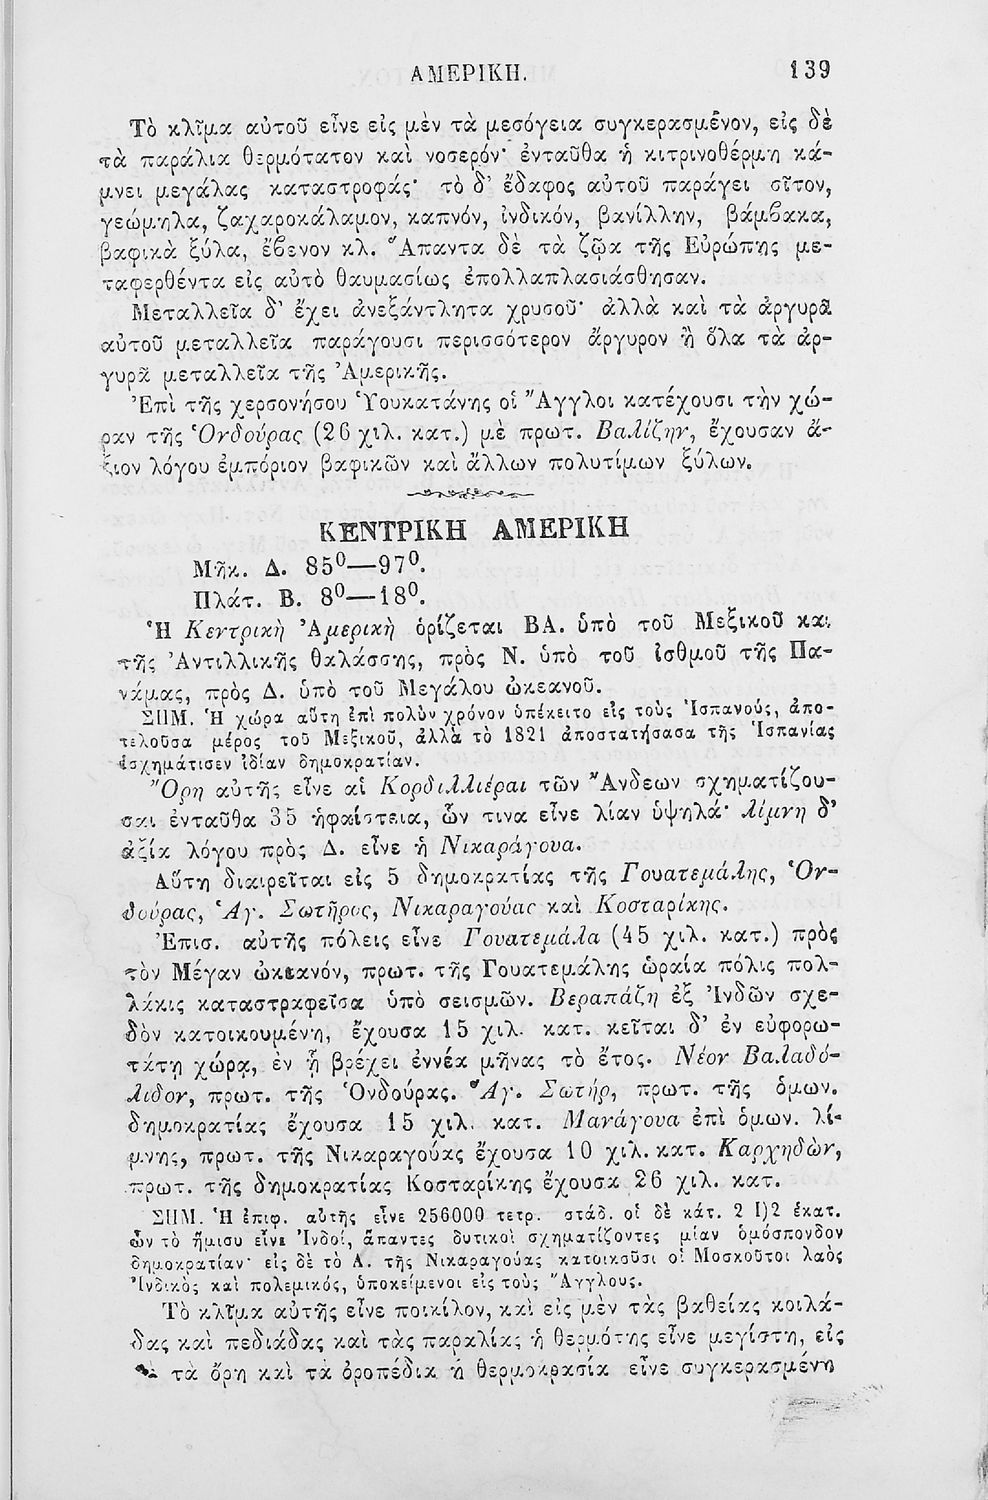 ΑΜΕΡΙΚΗ. 139
Τὸ κλῖμα αὐτοῦ εἶνε εἰς μὲν τὰ μεσόγεια συγκερασμένον, εἰς δὲ
τὰ παράλια θερμότατον καὶ νοσερόν· ἐνταῦθα ἡ κιτρινοθέρμη κά-
μνει μεγάλας καταστροφάς· τὸ δ' ἔδαφος αὐτοῦ παράγει σῖτον,
γεώμηλα, ζαχαροκάλαμον, καπνόν, ἰνδικόν, βανίλλην, βάμβακα,
βαφικὰ ξύλα, ἔβενον κλ. Ἅπαντα δὲ τὰ ζῷα τῆς Εὐρώπης με-
ταφερθέντα εἰς αὐτὸ θαυμασίως ἐπολλαπλασιάσθησαν.
Μεταλλεῖα δ' ἔχει ἀνεξάντλητα χρυσοῦ· ἀλλὰ καὶ τὰ ἀργυρᾶ
αὐτοῦ μεταλλεῖα παράγουσι περισσότερον ἄργυρον ἢ ὅλα τὰ ἀρ-
γυρᾶ μεταλλεῖα τῆς Ἀμερικῆς.
Ἐπὶ τῆς χερσονήσου Ὑουκατάνης οἱ Ἄγγλοι κατέχουσι τὴν χώ-
ραν τῆς Ὁνδούρας (26 χιλ. κατ.) μὲ πρωτ. Βαλίζην, ἔχουσαν ἄ-
ξιον λόγου ἐμπόριον βαφικῶν καὶ ἄλλων πολυτίμων ξύλων.
ΚΕΝΤΡΙΚΗ ΑΜΕΡΙΚΗ
Μῆκ. Δ. 85⁰—97⁰.
Πλάτ. Β. 8⁰—18⁰.
Ἡ Κεντρικὴ Ἀμερικὴ ὁρίζεται ΒΑ. ὑπὸ τοῦ Μεξικοῦ καὶ
τῆς Ἀντιλλικῆς θαλάσσης, πρὸς Ν. ὑπὸ τοῦ ἰσθμοῦ τῆς Πα-
νάμας, πρὸς Δ. ὑπὸ τοῦ Μεγάλου ὠκεανοῦ.
ΣΗΜ. Ἡ χώρα αὕτη ἐπὶ πολὺν χρόνον ὑπέκειτο εἰς τοὺς Ἰσπανούς, ἀπο-
τελοῦσα μέρος τοῦ Μεξικοῦ, ἀλλὰ τὸ 1821 ἀποστατήσασα τῆς Ἰσπανίας
ἐσχημάτισεν ἰδίαν δημοκρατίαν.
Ὄρη αὐτῆς εἶνε αἱ Κορδιλλιέραι τῶν Ἄνδεων σχηματίζου-
σαι ἐνταῦθα 35 ἡφαίστεια, ὧν τινα εἶνε λίαν ὑψηλά· λίμνη δ'
ἀξία λόγου πρὸς Δ. εἶνε ἡ Νικαράγουα.
Αὕτη διαιρεῖται εἰς 5 δημοκρατίας τῆς Γουατεμάλης, Ὁν-
δούρας, Ἁγ. Σωτῆρος, Νικαραγούας καὶ Κοσταρίκης.
Ἐπισ. αὐτῆς πόλεις εἶνε Γουατεμάλα (45 χιλ. κατ.) πρὸς
τὸν Μέγαν ὠκεανόν, πρωτ. τῆς Γουατεμάλης ὡραία πόλις πολ-
λάκις καταστραφεῖσα ὑπὸ σεισμῶν. Βεραπάζη ἐξ Ἰνδῶν σχε-
δὸν κατοικουμένη, ἔχουσα 15 χιλ. κατ. κεῖται δ' ἐν εὐφορω-
τάτῃ χώρᾳ, ἐν ᾗ βρέχει ἐννέα μῆνας τὸ ἔτος. Νέον Βαλαδό-
λιδον, πρωτ. τῆς Ὁνδούρας. Ἅγ. Σωτήρ, πρωτ. τῆς ὁμων.
δημοκρατίας ἔχουσα 15 χιλ. κατ. Μανάγουα ἐπὶ ὁμων. λί-
μνης, πρωτ. τῆς Νικαραγούας ἔχουσα 10 χιλ. κατ. Καρχηδὼν,
πρωτ. τῆς δημοκρατίας Κοσταρίκης ἔχουσα 26 χιλ. κατ.
ΣΗΜ. Ἡ ἐπιφ. αὐτῆς εἶνε 256000 τετρ. στάδ. οἱ δὲ κάτ. 2 1)2 ἑκατ.
ὧν τὸ ἥμισυ εἶνε Ἰνδοί, ἅπαντες δυτικοὶ σχηματίζοντες μίαν ὁμόσπονδον
δημοκρατίαν· εἰς δὲ τὸ Α. τῆς Νικαραγούας κατοικοῦσι οἱ Μοσκοῦτοι λαὸς
Ἰνδικὸς καὶ πολεμικός, ὑποκείμενοι εἰς τοὺς Ἄγγλους.
Τὸ κλῖμα αὐτῆς εἶνε ποικίλον, καὶ εἰς μὲν τὰς βαθείας κοιλά-
δας καὶ πεδιάδας καὶ τὰς παραλίας ἡ θερμότης εἶνε μεγίστη, εἰς
δὲ τὰ ὄρη καὶ τὰ ὀροπέδια ἡ θερμοκρασία εἶνε συγκερασμένη